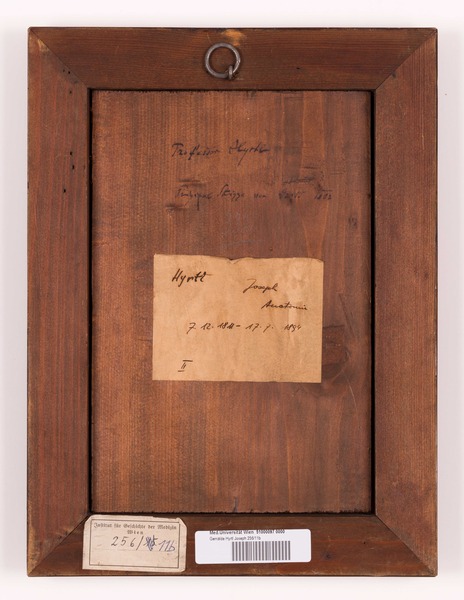 Professor Hyrtl
Skizze von
Hyrtl Joseph
Anatomie
7.12.1810 - 17.7.1894
II
Institut für Geschichte der Medizin
Wien
256/ 11b
Med.Universität Wien
Gemälde Hyrtl Joseph 256/11b